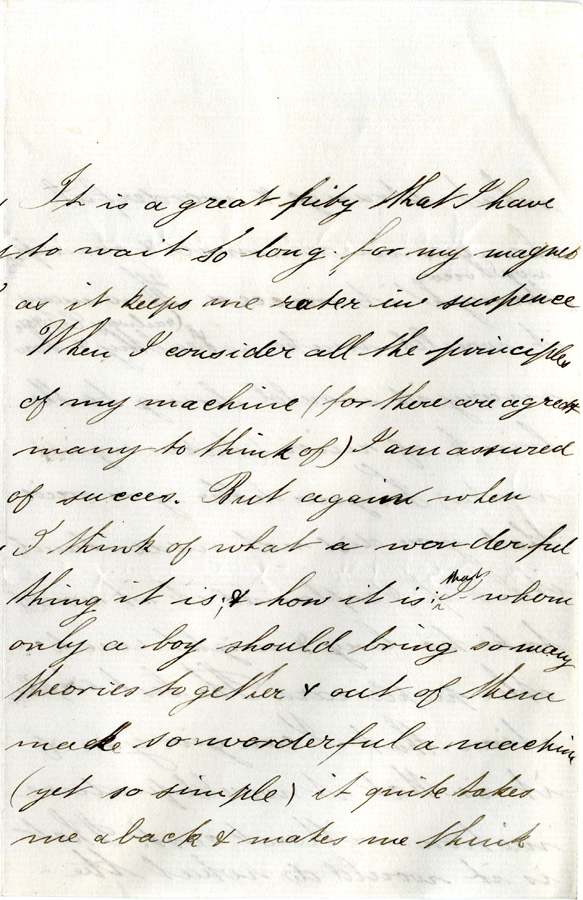 It is a great pity that I have
to wait so long. for my magnet
as it keeps me rater in suspence
When I consider all the principles
of my machine (for there are a great
many to think of) I am assured
of succes. But again when
I think of what a wonderful
thing it is; & how it is; that I whom
only a boy should bring so many
theories together & out of them
made so wonderful a machine
(yet so simple) it quite takes
me aback & makes me think